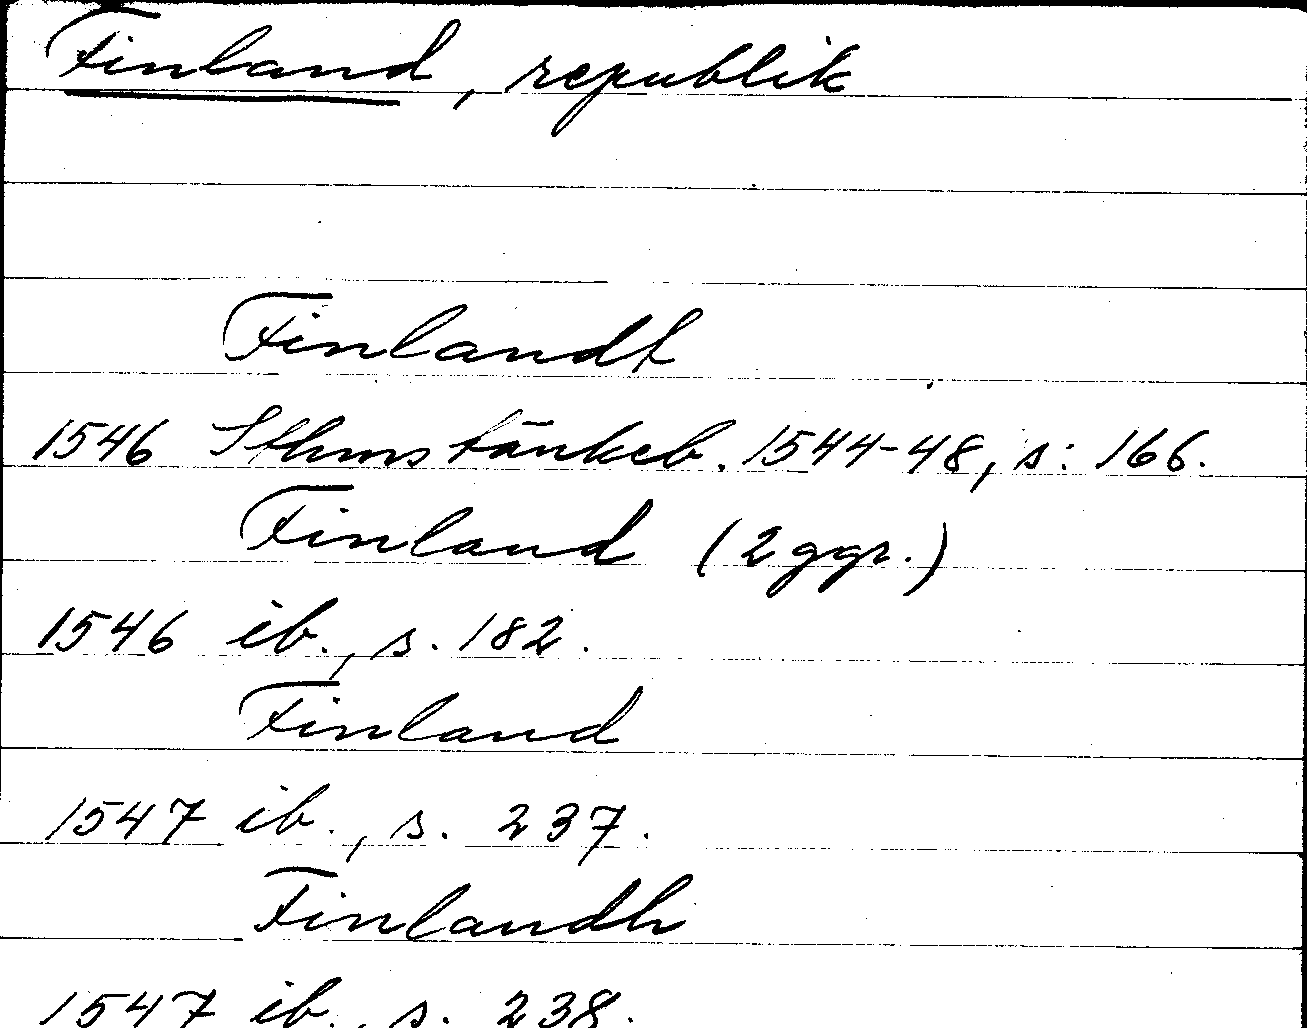 Finland, republik
Finlandt
1546 Sthms tänkeb. 1544-48, s: 166.
Finland (2 ggr.)
1546 ib., s. 182.
Finland
1547 ib., s. 237.
Finlandh
1547 ib., s. 238.